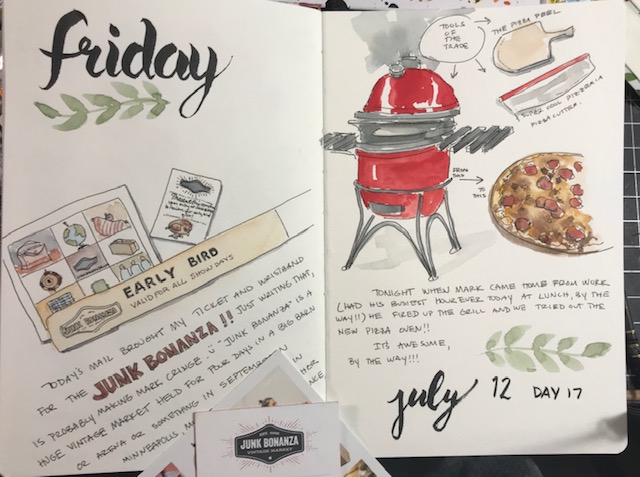 friday
EARLY BIRD
VALID FOR ALL SHOW DAYS
JUNK BONANZA
TODAY'S MAIL BROUGHT MY TICKET AND WRISTBAND
FOR THE JUNK BONANZA!! JUST WRITING THAT,
IS PROBABLY MAKING MARK CRINGE. "JUNK BONANZA" IS A
HUGE VINTAGE MARKET HELD FOR FOUR DAYS IN A BIG BARN
OR ARENA OR SOMETHING IN SEPTEMBER IN
MINNEAPOLIS,
JUNK BONANZA
VINTAGE MARKET
TOOLS
OF
THE
TRADE
THE PIZZA PEEL
SUPER COOL PIZZERIA
PIZZA CUTTER.
FROM
THIS
TO
THIS
TONIGHT WHEN MARK CAME HOME FROM WORK
(HAD HIS BUSIEST HOUR EVER TODAY AT LUNCH, BY THE
WAY!!) HE FIRED UP THE GRILL AND WE TRIED OUT THE
NEW PIZZA OVEN!!
IT'S AWESOME,
BY THE WAY!!!
july 12 DAY 17